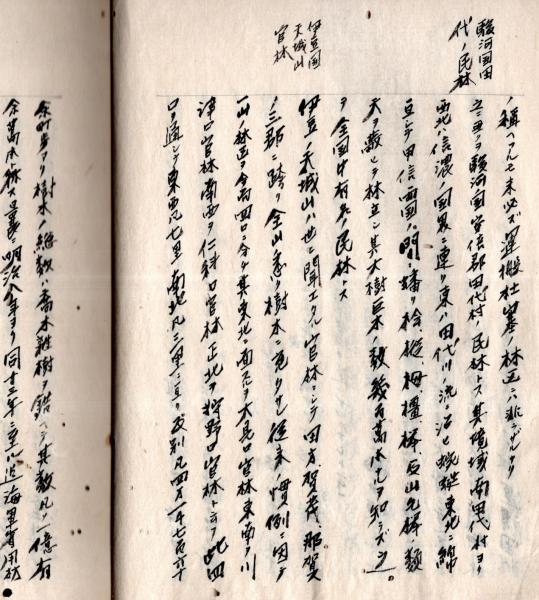 駿河国田
代ノ民林
ノ称ヘアルモ未必ズ運搬杜塞ノ林区ニハ非ザルナリ
立ニヨヲ駿河国安倍郡田代村ノ民林トス其境域南田代村ヨリ
西北ハ信濃ノ国界ニ連リ東ハ田代川ノ流ニ沿ヒ東北ニ綿
亘シテ甲信両国ニ栂檀樺類
天ヲ蔽ヒテ林立シ其大樹巨木ノ数幾百万本ナルヲ知ラズシ
ヲ全国中有名ノ民林トス
伊豆国
天城山
官林
伊豆ノ天城山ハ世ニ聞エタル官林ニシテ田方、賀茂、那賀
ノ三郡ニ跨リ全山悉ク樹木ニ充ツ従来ノ慣例ニ因テ
一山林区ヲ分チ四口ニ分ケ其東北ニ面スルヲ大見口官林東南ヲ川
津口官林南西ヲ仁科口官林正北ヲ狩野口官林ト云フ此四
口ヲ通シテ東西凡七里南北凡三里ニ亘リ反別凡四万一千七百六十
余町歩アリ樹木ノ総数ハ喬木雑樹ヲ錯ヘテ其数凡一億有
余万本ト称ス明治八年ヨリ同十二年ニ至ル迄海軍省用材